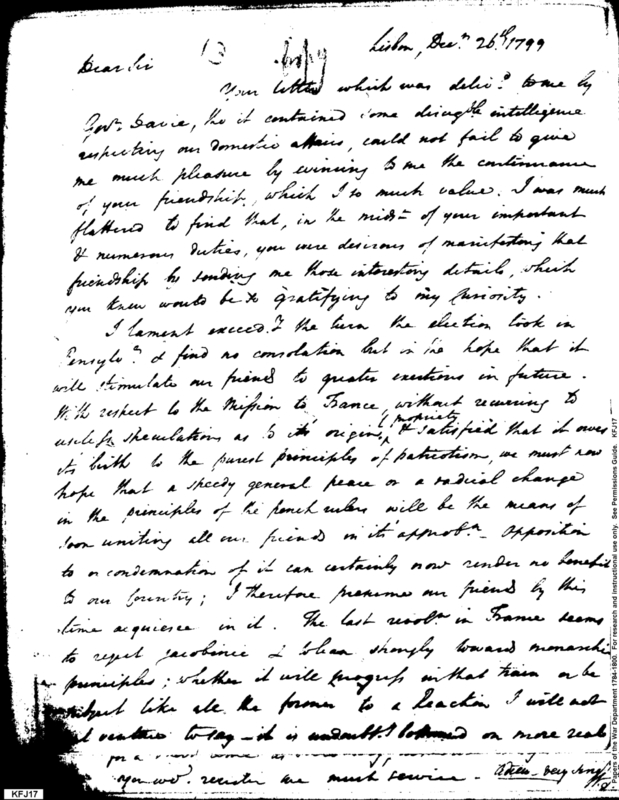 13 Copy
Lisbon, Decr. 26th 1799
Dear Sir
Your letter which was delivd. to me by
Govr. Davie, tho it contained some disagble intelligence
respecting our domestic affairs, could not fail to give
me much pleasure by evincing to me the continuance
of your friendship, which I so much value. I was much
flattered to find that, in the midst of your important
& numerous duties, you were desirous of manifesting that
friendship by sending me those interesting details, which
you knew would be so gratifying to my curiosity.
I lament exceedly the turn the election took in
Pensylva. & find no consolation but in the hope that it
will stimulate our friends to greater exertions in future.
With respect to the Mission to France, without recurring to
useless speculations as to its origin, & propriety satisfied that it owes
its birth to the purest principles of patriotism, we must now
hope that a speedy general peace or a radical change
in the principles of the french rulers will be the means of
soon uniting all our friends in its approbn. Opposition
to or condemnation of it can certainly now render no benefit
to our Country; I therefore presume our friends by this
time acquiesce in it. The last revoltn in France seems
to reject jacobinic & to lean strongly toward monarchic
principles; whether it will progress in that train or be
subject like all the former to a Reaction I will not
venture to say - it is undoubtly bottomed on more real
for a
You wod. render me much service. Adieu very
KFJ17
Papers of the War Department 1784-1800. For research and instructional use only. See Permissions Guide. KFJ17